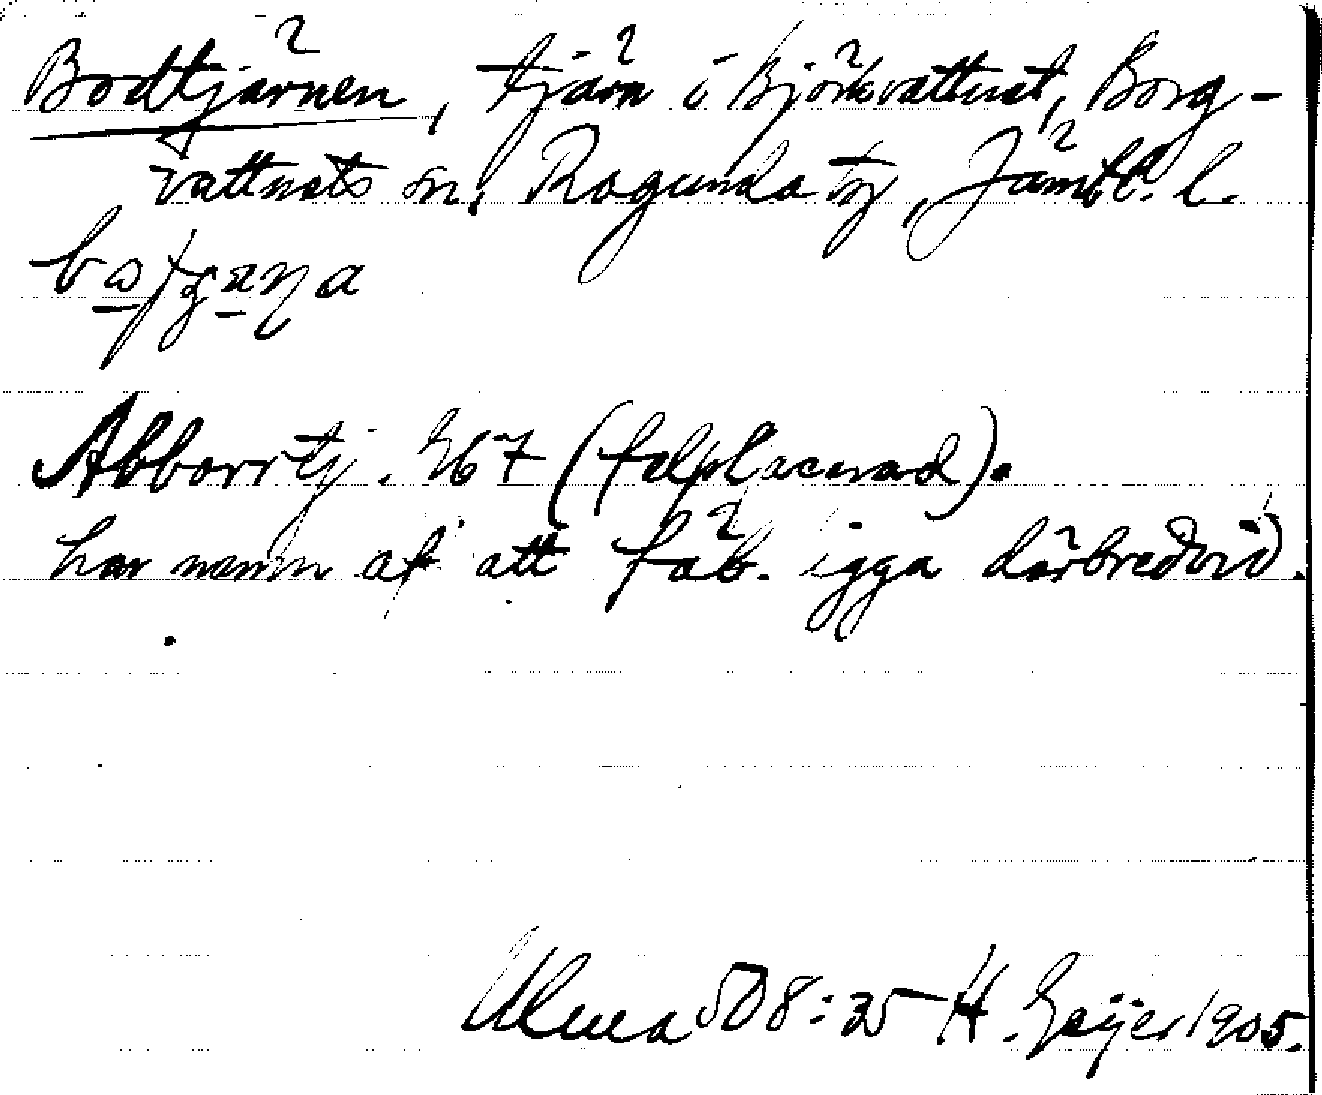 Bodtjärnen, tjärn i Björkvattnet, Borg-
vattnets sn, Ragunda tg, Jämtl. l.
Abborrtj. G67 (felplacerad).
har namn af att fäb. igga därbredvid.
Ulma 508:35 H. Geijer 1905.